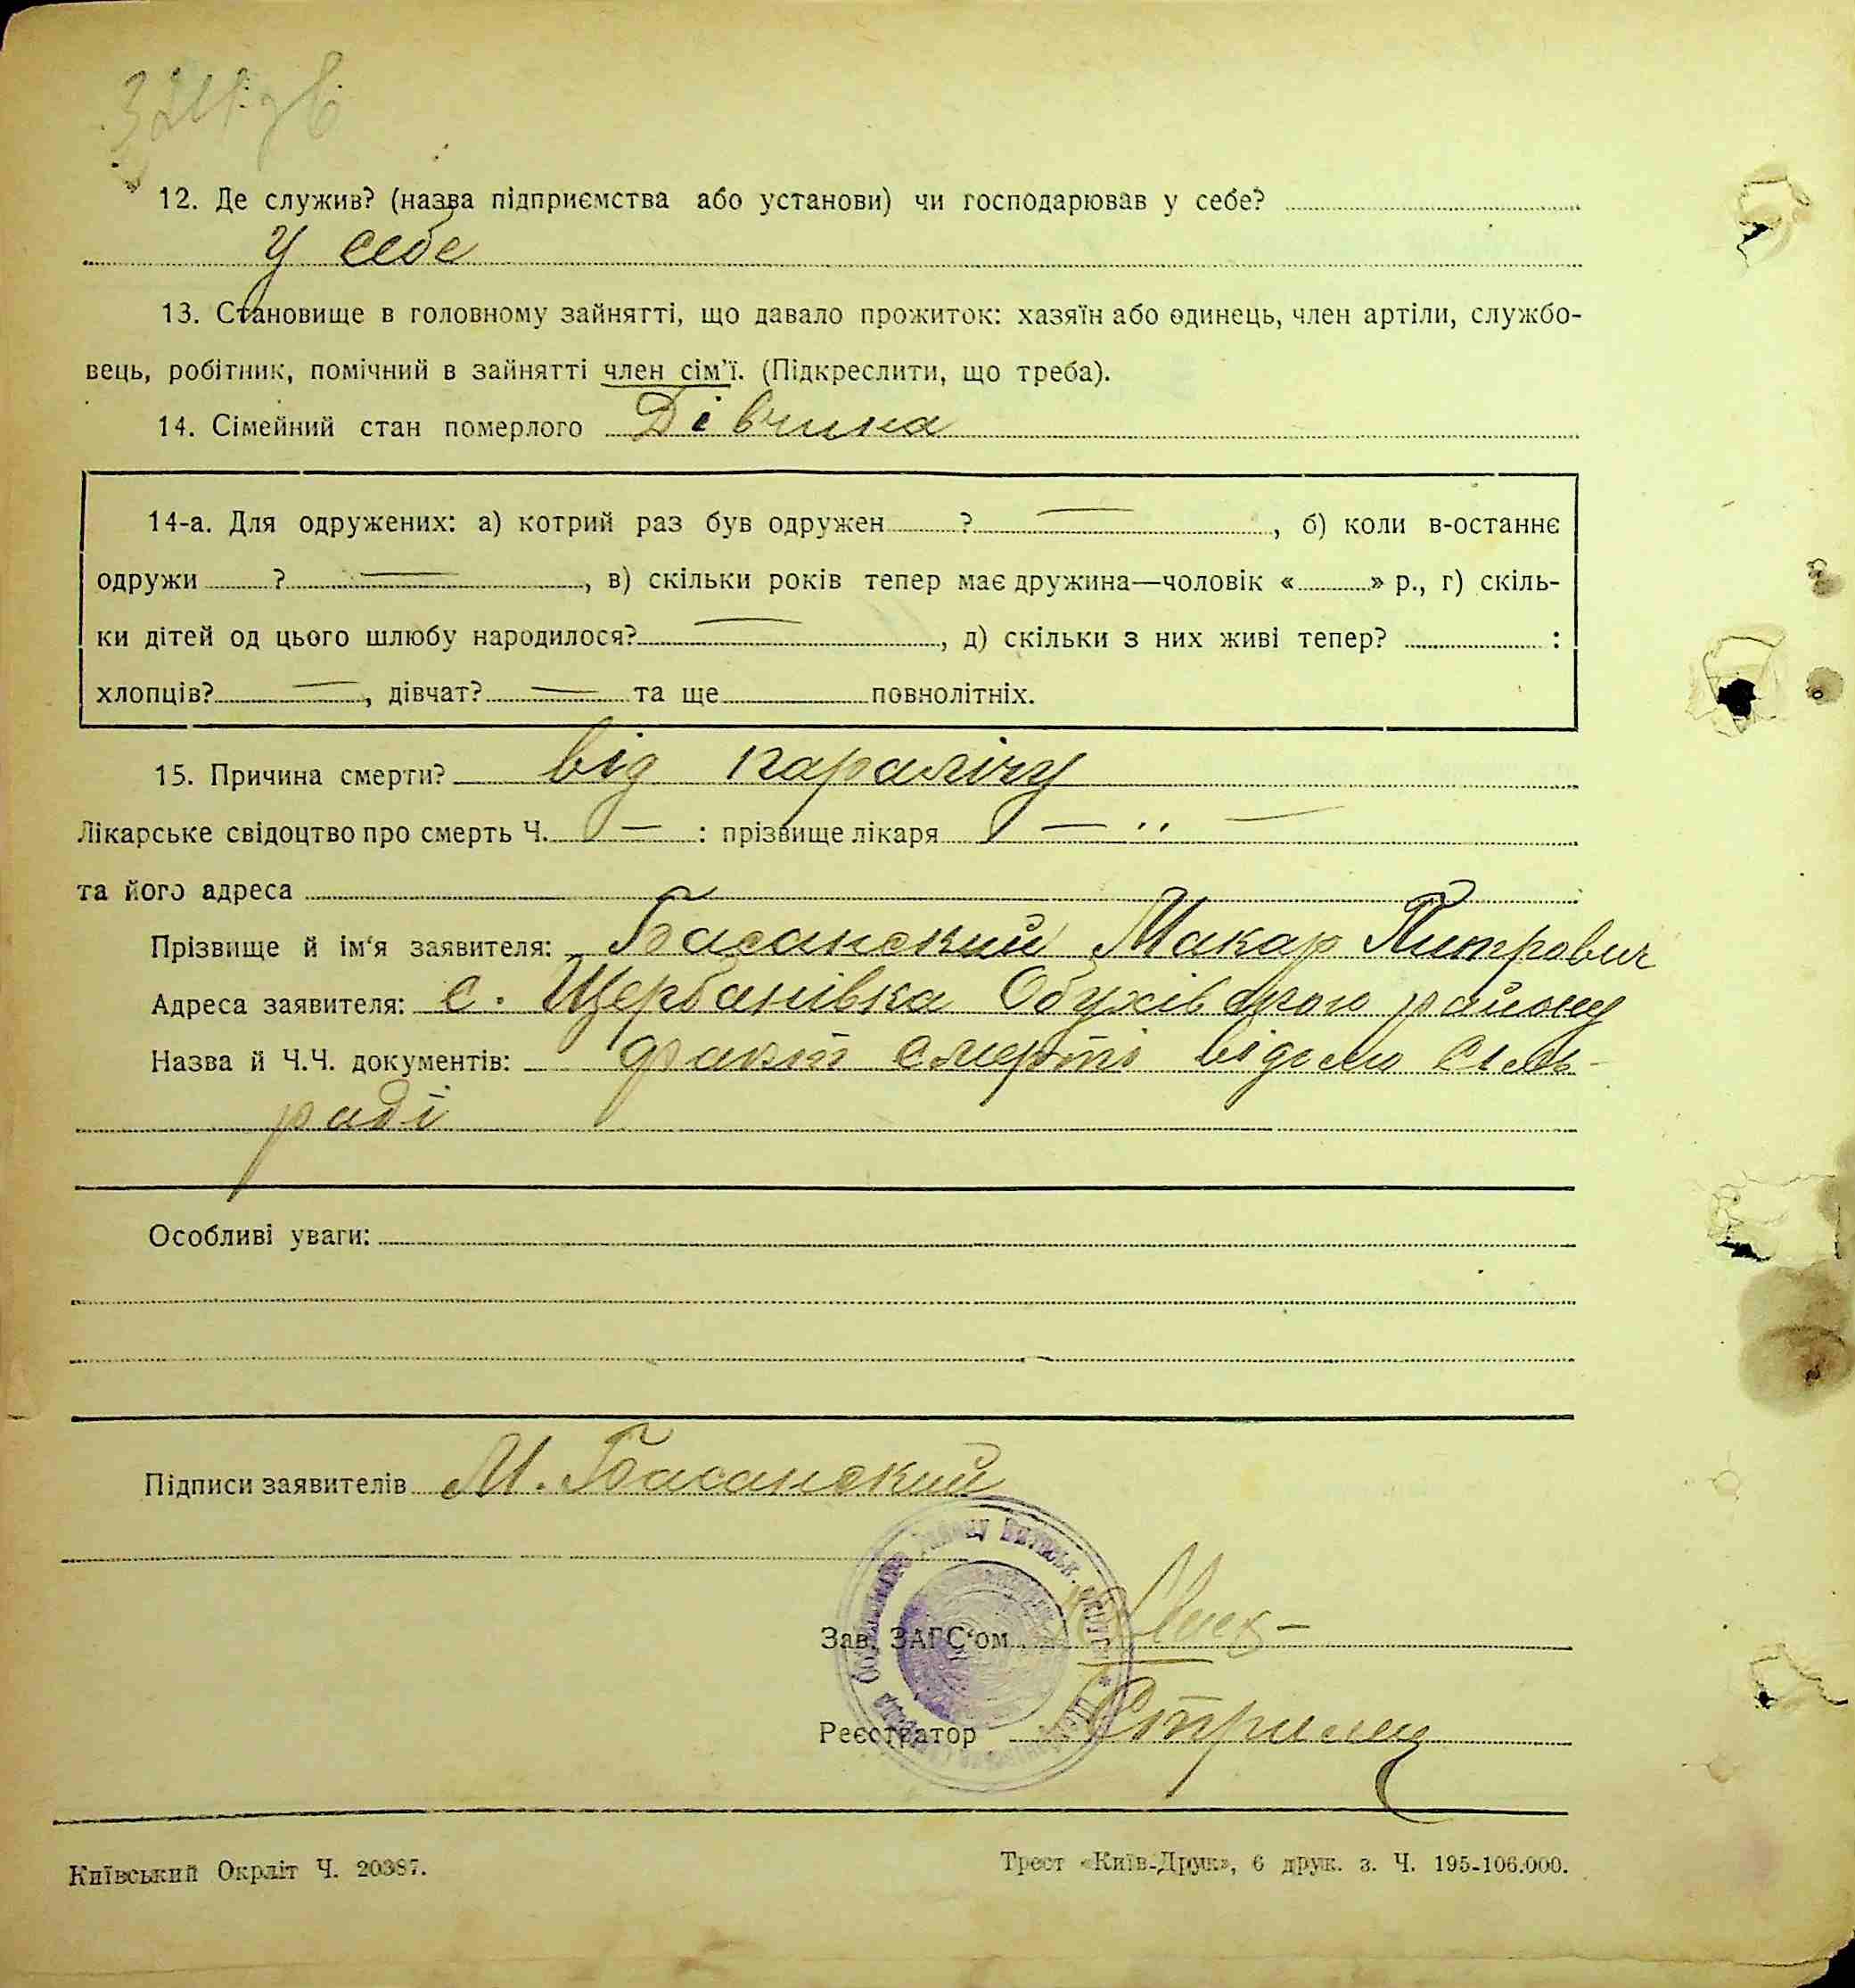 12. Де служив? (назва підприємства або установи) чи господарював у себе?
у себе
13. Становище в головному зайнятті, що давало прожиток: хазяїн або одинець, член артіли, службо-
вець, робітник, помічний в зайнятті член сім'ї. (Підкреслити, що треба).
14. Сімейний стан померлого Дівчина
14-а. Для одружених: а) котрий раз був одружен ? —, б) коли в-останнє
одружи ? —, в) скільки років тепер має дружина—чоловік « » р., г) скіль-
ки дітей од цього шлюбу народилося? —, д) скільки з них живі тепер? :
хлопців? —, дівчат? — та ще повнолітніх.
15. Причина смерти? від паралічу
Лікарське свідоцтво про смерть Ч. — : прізвище лікаря — „ —
та його адреса
Прізвище й ім'я заявителя: Басанский Макар Питрович
Адреса заявителя: с. Щербанівка Обухівського району
Назва й Ч.Ч. документів: факт смерті відомо сіль-
раді
Особливі уваги:
Підписи заявителів М. Басанский
Зав. ЗАГС'ом
Реєстратор Стрилец
Київський Окрліт Ч. 20387.
Трест «Київ-Друк», 6 друк. з. Ч. 195-106.000.